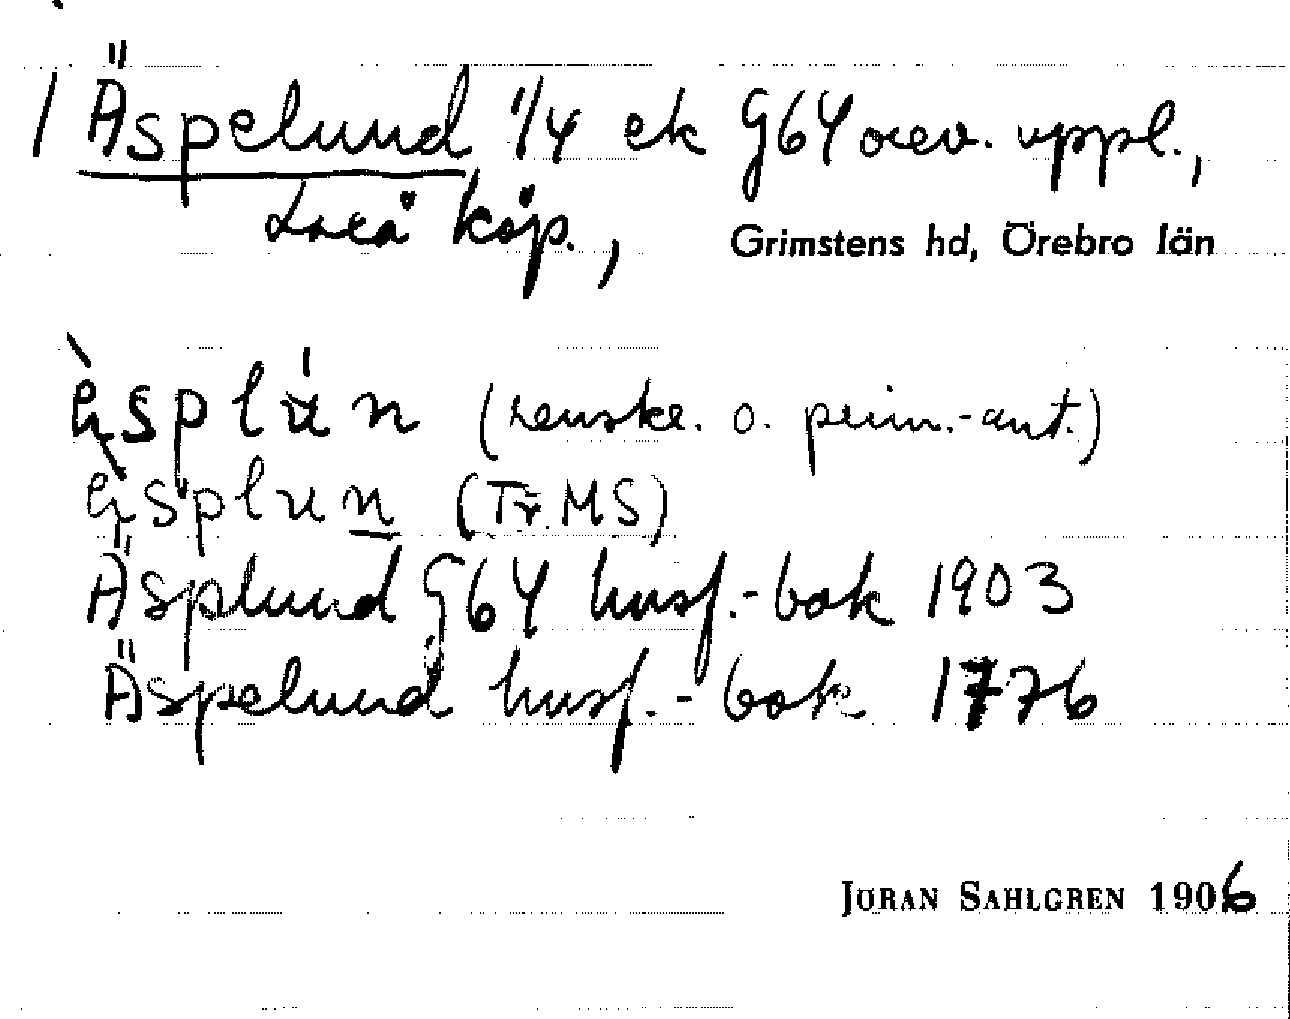 / Äspelund 1/4 ek G64 orev. uppl.,
Lerä köp.,
Grimstens hd, Örebro län
èsplún (renskr. o. prim.-ant.)
èsplun (Tr. MS)
Äsplund G64 husf.-bok 1903
Äspelund husf.-bok 1776
JÖRAN SAHLGREN 1906